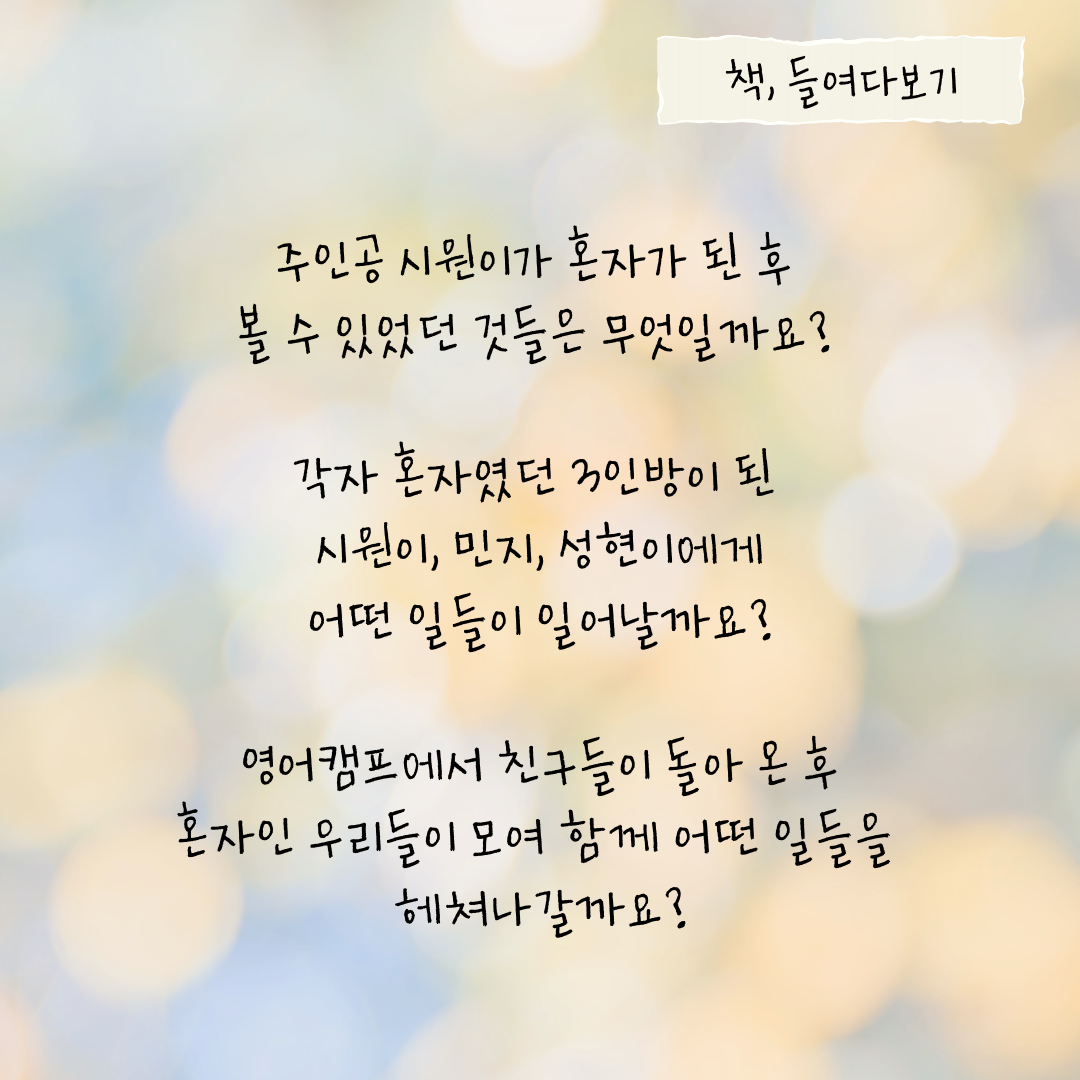 책, 들여다보기
주인공 시원이가 혼자가 된 후
볼 수 있었던 것들은 무엇일까요?
각자 혼자였던 3인방이 된
시원이, 민지, 성현이에게
어떤 일들이 일어날까요?
영어캠프에서 친구들이 돌아 온 후
혼자인 우리들이 모여 함께 어떤 일들을
헤쳐나갈까요?